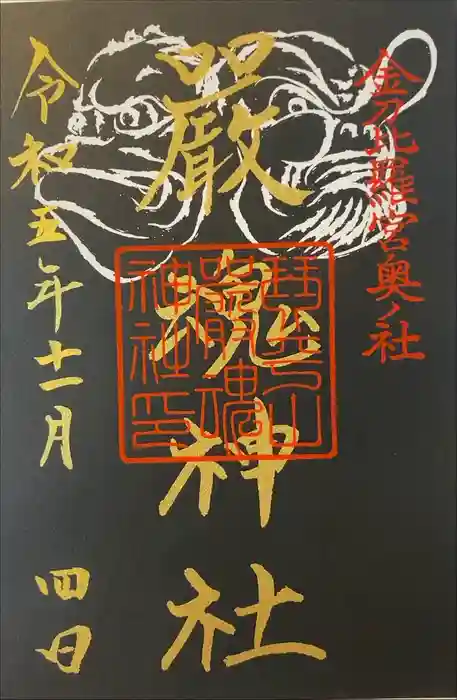 金刀比羅宮奥ノ社
嚴魂神社
琴平山
嚴魂
神社印
令和五年十一月
四日